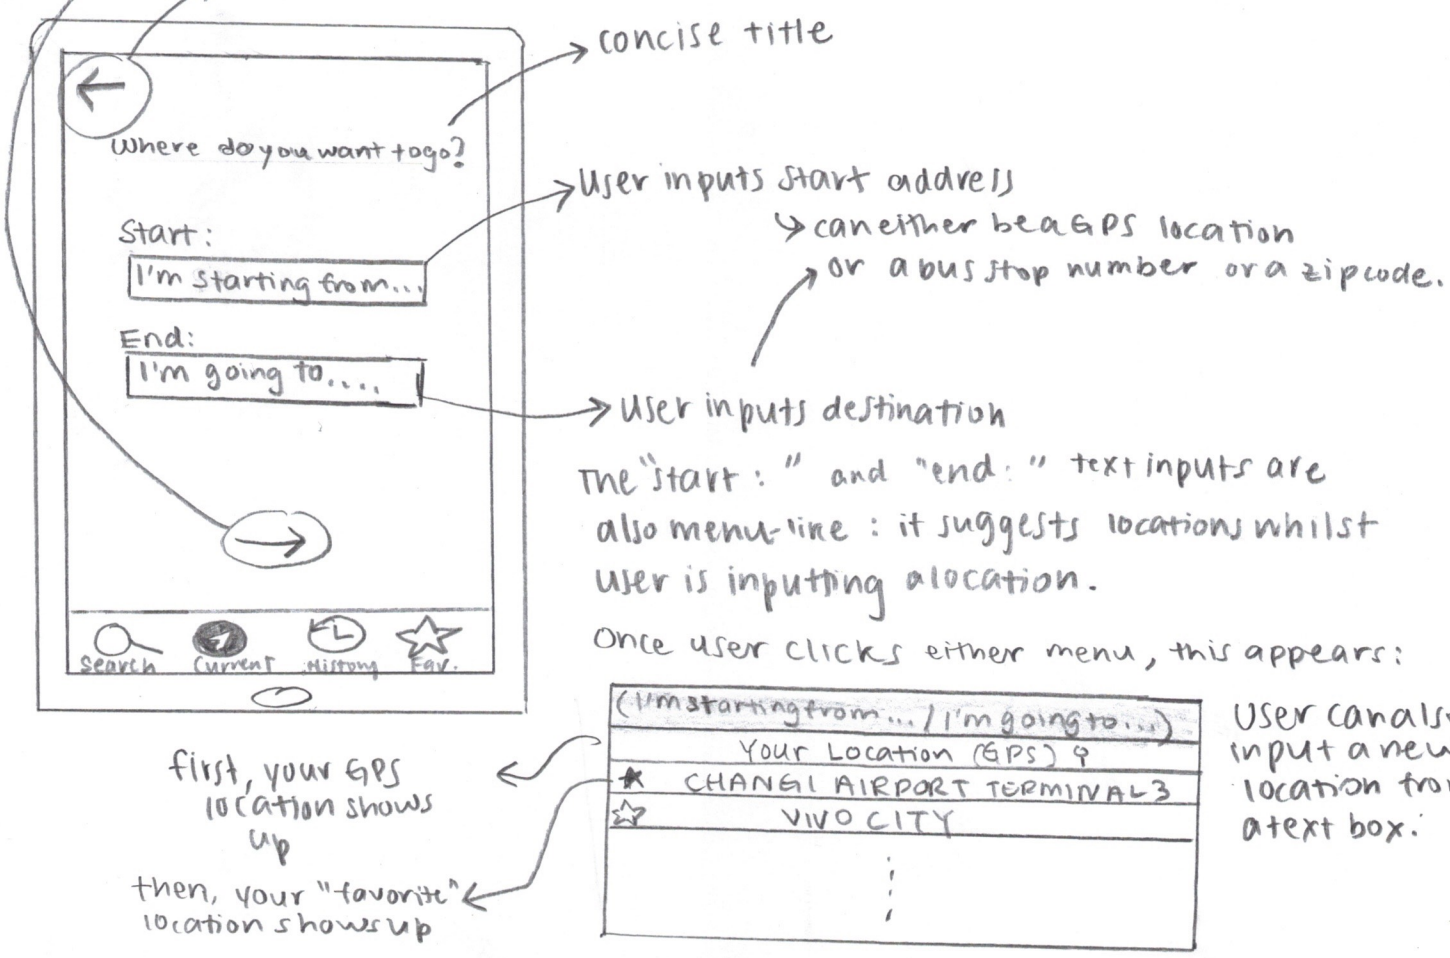 concise title
Where do you want to go?
Start:
I'm starting from...
End:
I'm going to....
Search
Current
History
Fav.
User inputs start address
can either be a GPS location
or a bus stop number or a zipcode.
User inputs destination
The "start:" and "end:" text inputs are
also menu-like: it suggests locations whilst
user is inputting a location.
Once user clicks either menu, this appears:
(I'm starting from... / I'm going to...)
Your Location (GPS)
CHANGI AIRPORT TERMINAL 3
VIVO CITY
first, your GPS
location shows
up
then, your "favorite"
location shows up
User can als
input a new
location fro
a text box.